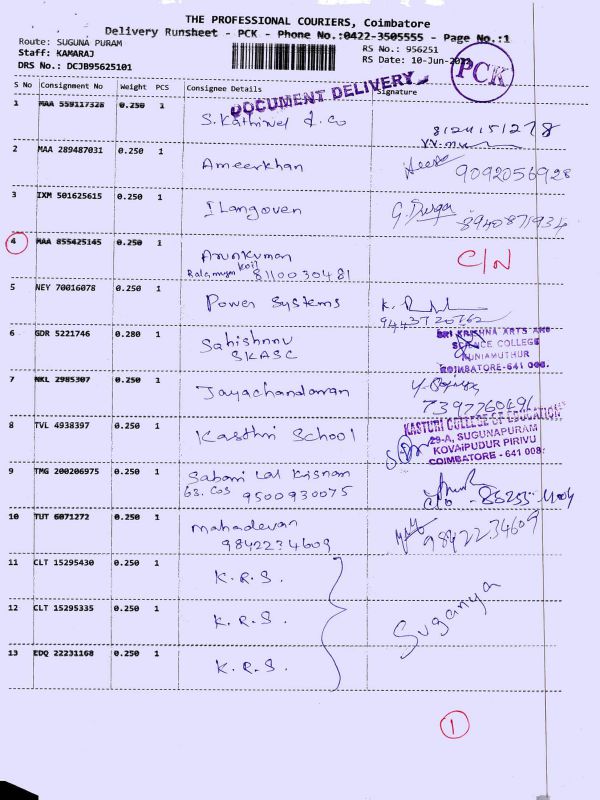 THE PROFESSIONAL COURIERS, Coimbatore
Delivery Runsheet - PCK - Phone No.:0422-3505555 - Page No.:1
Route: SUGUNA PURAM
Staff: KAMARAJ
DRS No.: DCJB95625101
RS No.: 956251
RS Date: 10-Jun-2022
PCK
DOCUMENT DELIVERY
S No Consignment No Weight PCS Consignee Details Signature
1 MAA 559117328 0.250 1 S. Kathirvel & Co 8124151278
2 MAA 289487031 0.250 1 Ameerkhan 9092056928
3 IXM 501625615 0.250 1 Ilangoven G. Durga 8940871934
4 MAA 855425145 0.250 1 Arunkumar C/N
Koil
8110030481
5 NEY 70016078 0.250 1 Power Systems K.
9443720762
6 GDR 5221746 0.280 1 Sahishnnu
SKASC
SRI KRISHNA ARTS AND
SCIENCE COLLEGE
KUNIAMUTHUR
COIMBATORE-641 008.
7 NKL 2985307 0.250 1 Jayachandaran
7397760491
8 TVL 4938397 0.250 1 Kasthri School
KASTURI COLLEGE OF EDUCATION
29-A, SUGUNAPURAM
KOVAIPUDUR PIRIVU
COIMBATORE - 641 008.
9 TMG 200206975 0.250 1 Sabari Lal Krisnam
63. Cos 9500930075
10 TUT 6071272 0.250 1 Mahadevan
9842234609 9842234609
11 CLT 15295430 0.250 1 K.R.S.
12 CLT 15295335 0.250 1 K.R.S. Suganya
13 EDQ 22231168 0.250 1 K.R.S.
1